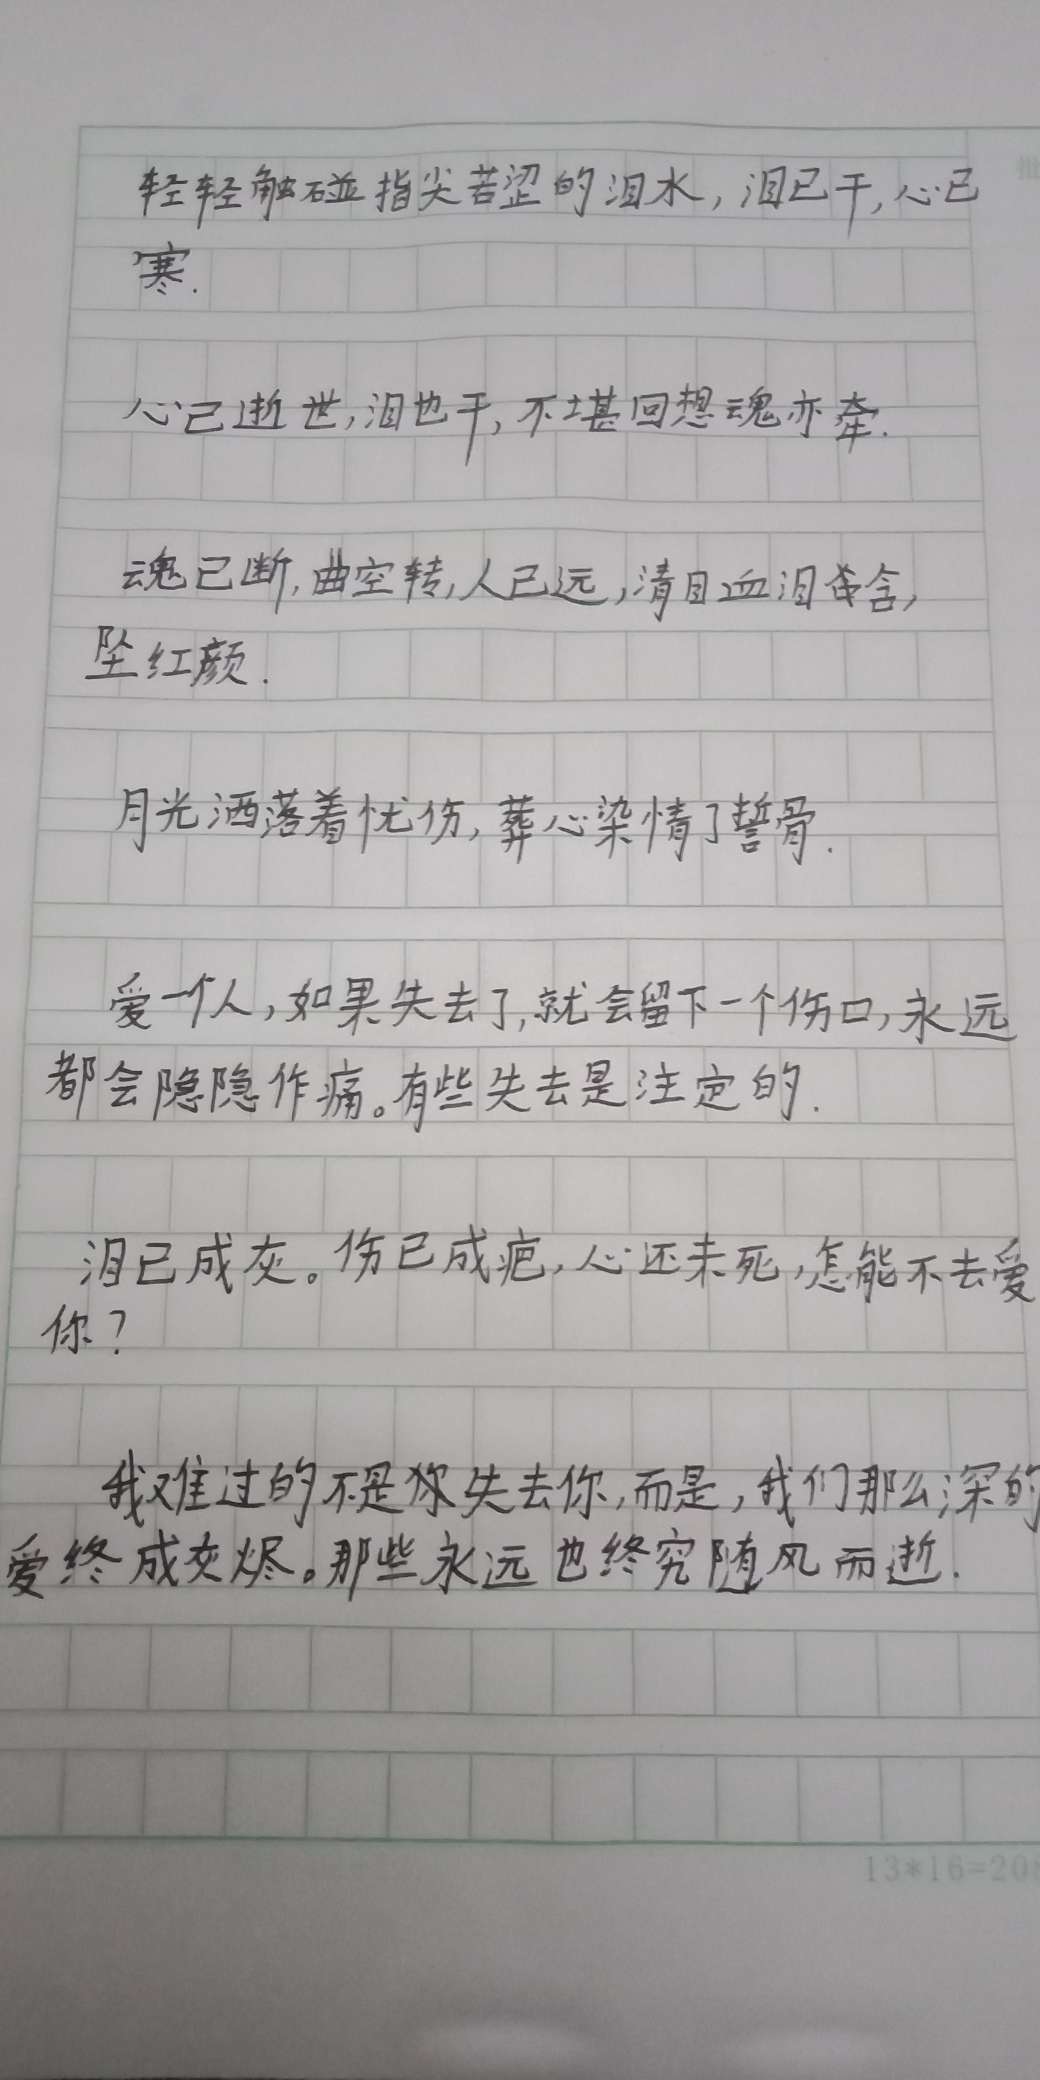 轻轻触碰指尖苦涩的泪水，泪已干，心已
寒.
心已逝世，泪也干，不堪回想魂亦牵.
魂已断，曲空转，人已远，清目血泪含，
坠红颜.
月光洒落着忧伤，葬心染情了誓骨.
爱一个人，如果失去了，就会留下一个伤口，永远
都会隐隐作痛。有些失去是注定的.
泪已成灰。伤已成疤，心还未死，怎能不去爱
你？
我难过的不是你失去你，而是，我们那么深的
爱终成灰烬。那些永远也终究随风而逝.
13*16=208